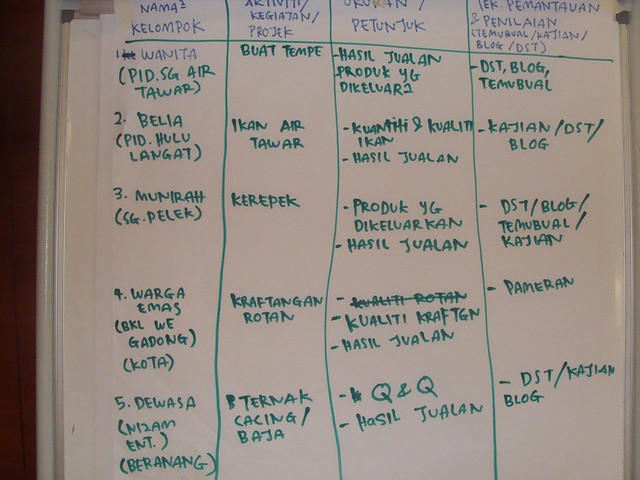 NAMA²
KELOMPOK
AKTIVITI/
KEGIATAN/
PROJEK
UKURAN /
PETUNJUK
TEK. PEMANTAUAN
& PENILAIAN
(TEMUBUAL/KAJIAN/
BLOG/DST)
1. WANITA
(PID.SG AIR
TAWAR)
BUAT TEMPE
-HASIL JUALAN
PRODUK YG
DIKELUAR2
- DST, BLOG,
TEMUBUAL
2. BELIA
(PID.HULU
LANGAT)
IKAN AIR
TAWAR
- KUANTITI & KUALITI
IKAN
- HASIL JUALAN
- KAJIAN/DST/
BLOG
3. MUNIRAH
(SG.PELEK)
KEREPEK
- PRODUK YG
DIKELUARKAN
- HASIL JUALAN
- DST/BLOG/
TEMUBUAL/
KAJIAN
4. WARGA
EMAS
(BKL WE
GADONG)
(KOTA)
KRAFTANGAN
ROTAN
- KUALITI ROTAN
- KUALITI KRAFTGN
- HASIL JUALAN
- PAMERAN
5. DEWASA
(NIZAM
ENT.)
(BERANANG)
TERNAK
CACING/
BAJA
- Q & Q
- HASIL JUALAN
- DST/KAJIAN
BLOG